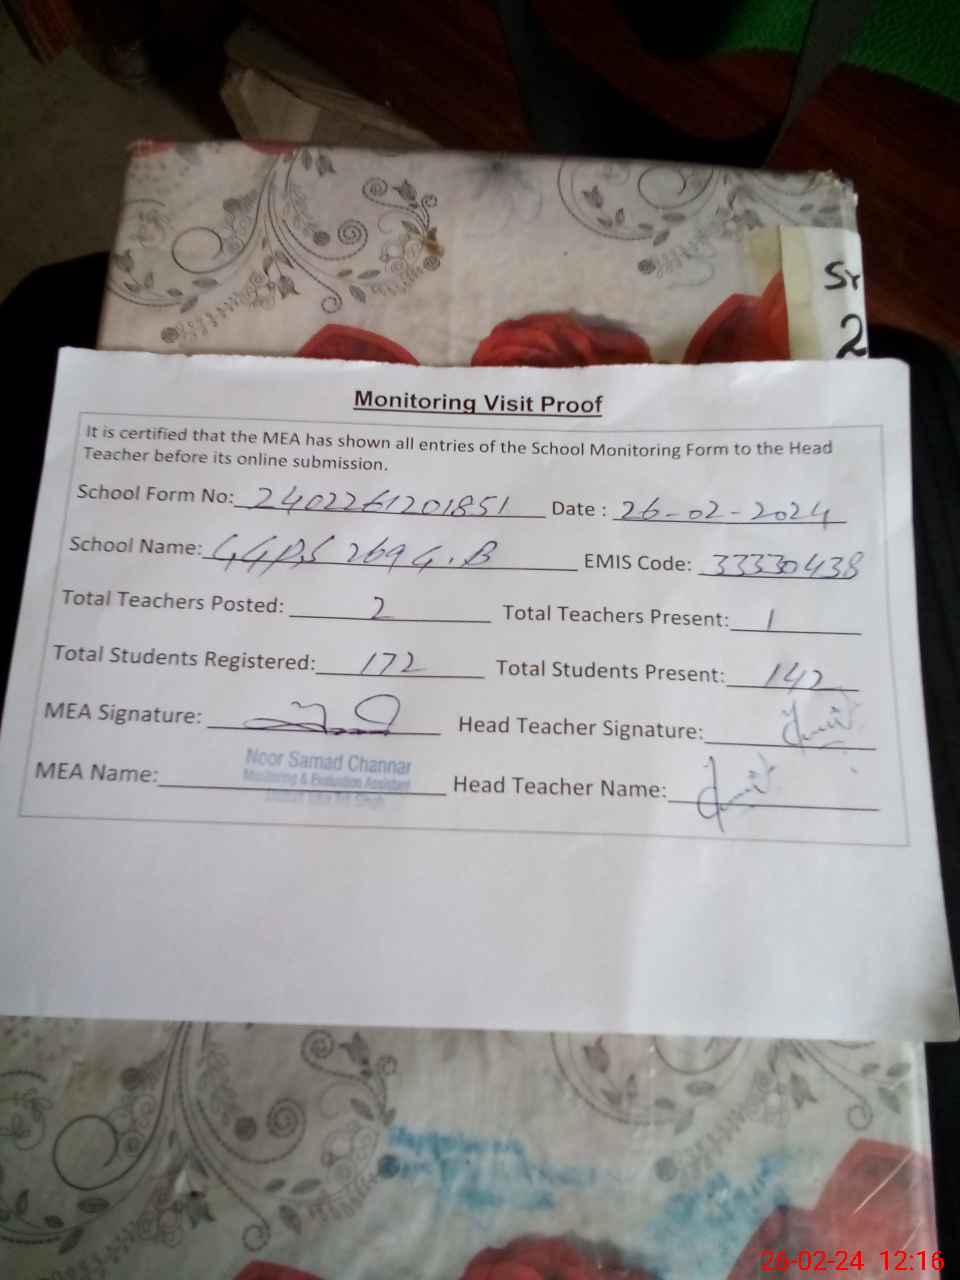 Sr
2
Monitoring Visit Proof
It is certified that the MEA has shown all entries of the School Monitoring Form to the Head
Teacher before its online submission.
School Form No: 2402261201851 Date : 26-02-2024
School Name: GGPS 269 G.B EMIS Code: 33330438
Total Teachers Posted: 2 Total Teachers Present: 1
Total Students Registered: 172 Total Students Present: 142
MEA Signature: Head Teacher Signature:
MEA Name: Noor Samad Channar Head Teacher Name:
Monitoring & Evaluation Assistant
26-02-24 12:16